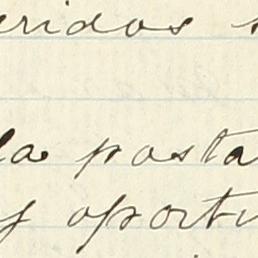 eridos
la posta
y oportu